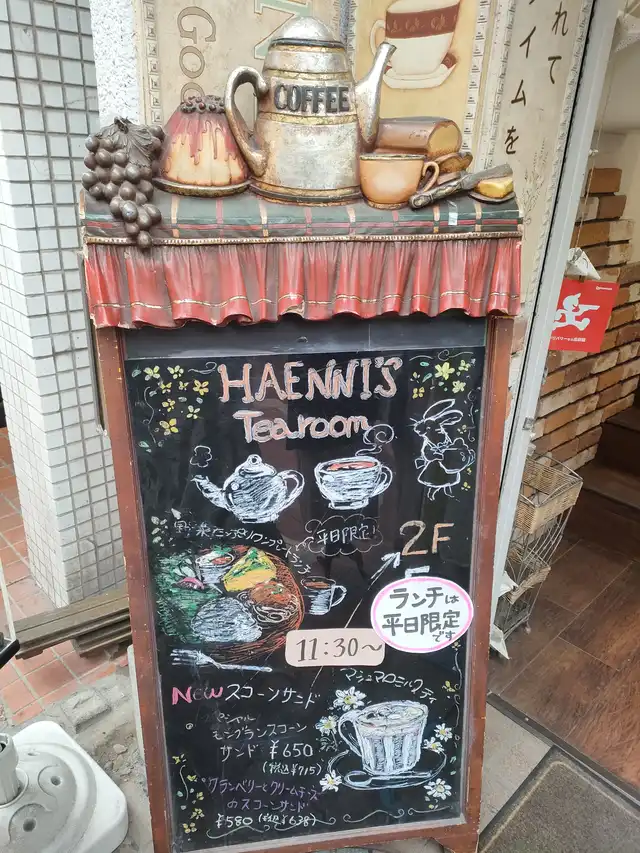 Goo
れて
イムを
COFFEE
HAENNI'S
Tearoom
野菜たっぷりワンプレートランチ
平日限定!
2F
ランチは
平日限定
です
11:30〜
NEW スコーンサンド
マシュマロミルクティ
モンブランスコーン
サンド ¥650
(税込¥715)
クランベリーとクリームチーズ
のスコーンサンド
¥580 (税込¥638)